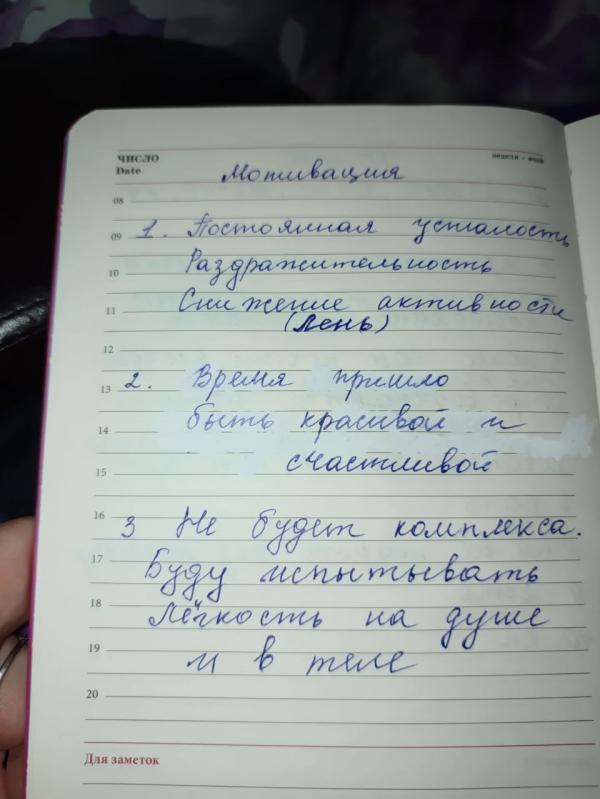 ЧИСЛО
Date
недели · week
Мотивация
08
09 1. Постоянная усталость
Раздражительность
10
Снижение активности
11
(Лень)
12
2. Время пришло
13
быть красивой и
14
счастливой
15
16
3 Не будет комплекса.
17
Буду испытывать
18
Лёгкость на душе
19
и в теле
20
Для заметок